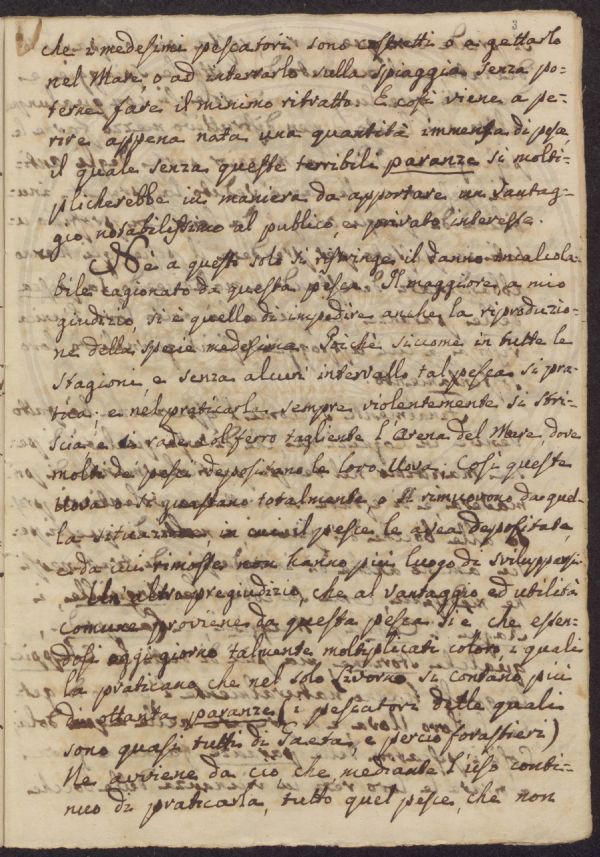 3
che i medesimi pescatori sono costretti o a gettarlo
nel Mare, o ad interrarlo sulla spiaggia senza po-
terne fare il minimo ritratto. E così viene a pe-
rire appena nata una quantità immensa di pesce
il quale senza queste terribili paranze si molti-
plicherebbe in maniera da apportare un vantag-
gio notabilissimo al publico e privato interesse.
Nè a questo solo si ristringe il danno incalcola-
bile cagionato da questa pesca. Il maggiore, a mio
giudizio, si è quello di impedire anche la riproduzio-
ne della specie medesima. Poichè siccome in tutte le
stagioni, e senza alcun intervallo tal pesca si pra-
tica, e nel praticarla sempre violentemente si stri-
scia e si rade col ferro tagliente l'Arena del Mare, dove
molti de pesci depositano le loro Uova. Così queste
Uova o si guastano totalmente, o si rimuovono da quel-
la situazione in cui il pesce le avea depositate,
e da cui rimosse non hanno più luogo di svilupparsi.
Un altro pregiudizio, che al vantaggio ed utilità
comune proviene da questa pesca si è che essen-
dosi oggi giorno talmente moltiplicati coloro, i quali
la praticano che nel solo Livorno si contano più
di ottanta paranze (i pescatori delle quali
sono quasi tutti di Gaeta, e perciò forastieri)
Ne avviene da ciò che mediante l'uso conti-
nuo di praticarla, tutto quel pesce, che non